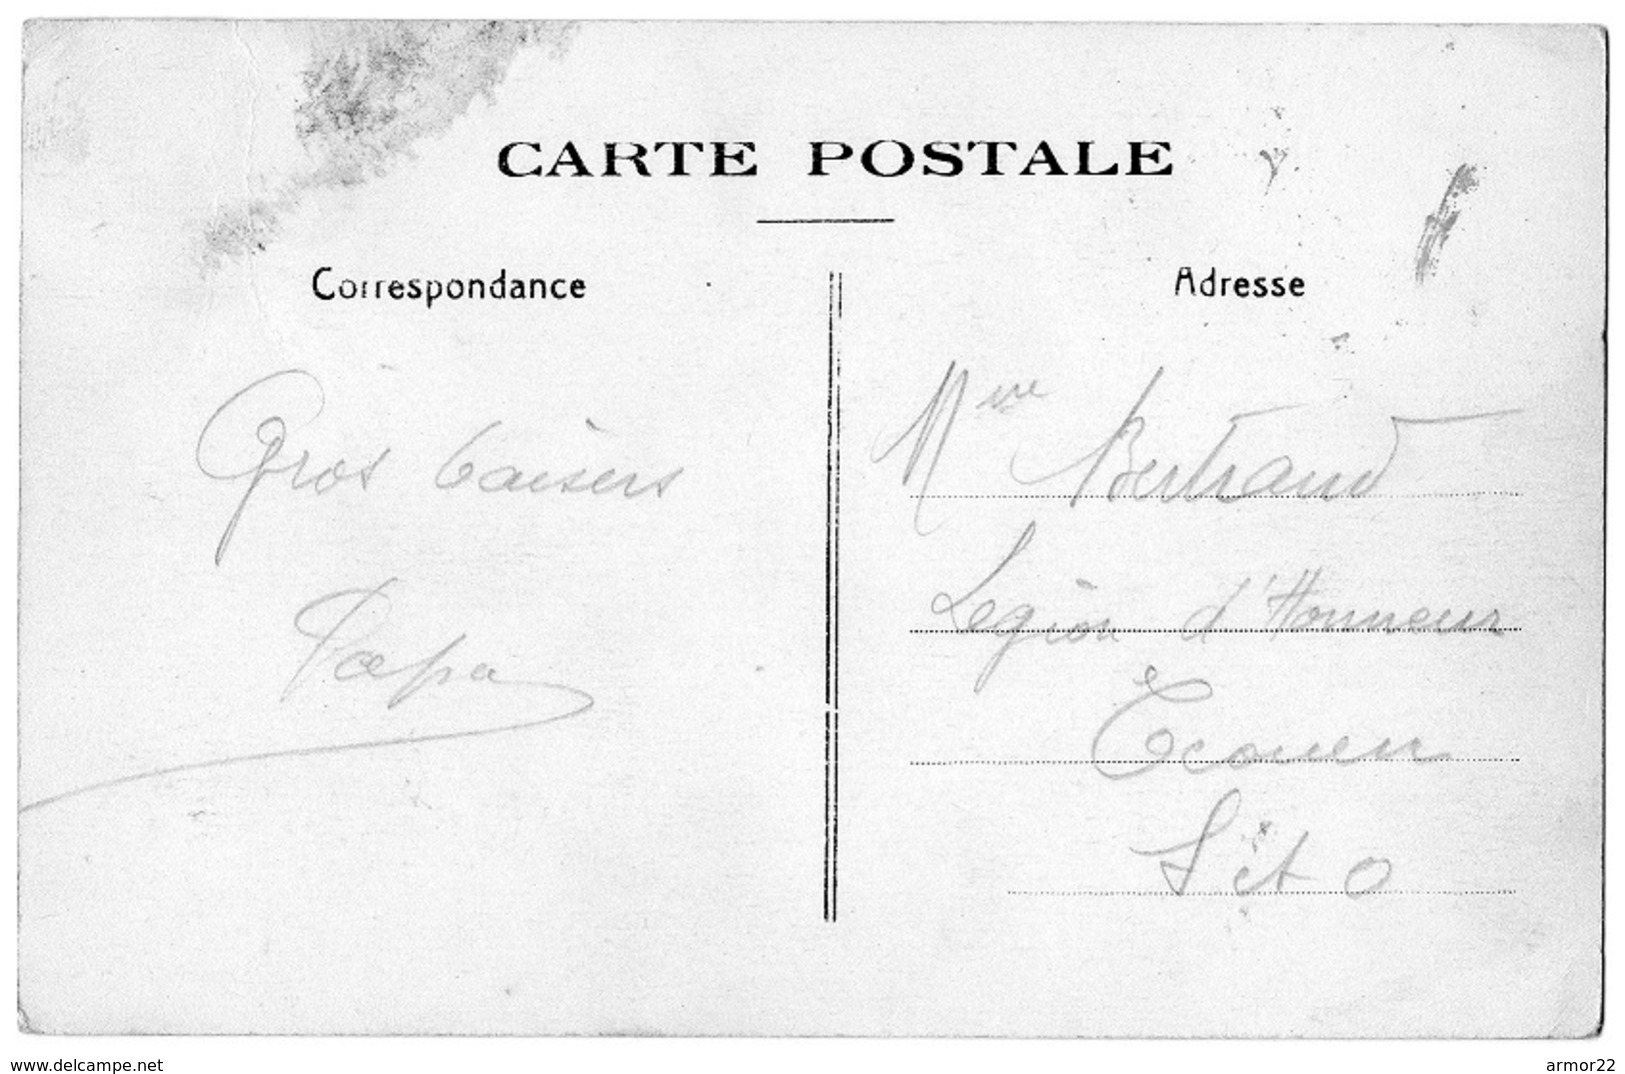 CARTE POSTALE
Correspondance
Gros baisers
Papa
Adresse
Mme Bertrand
Legion d'Honneur
Ecouen
S et O
www.delcampe.net
armor22